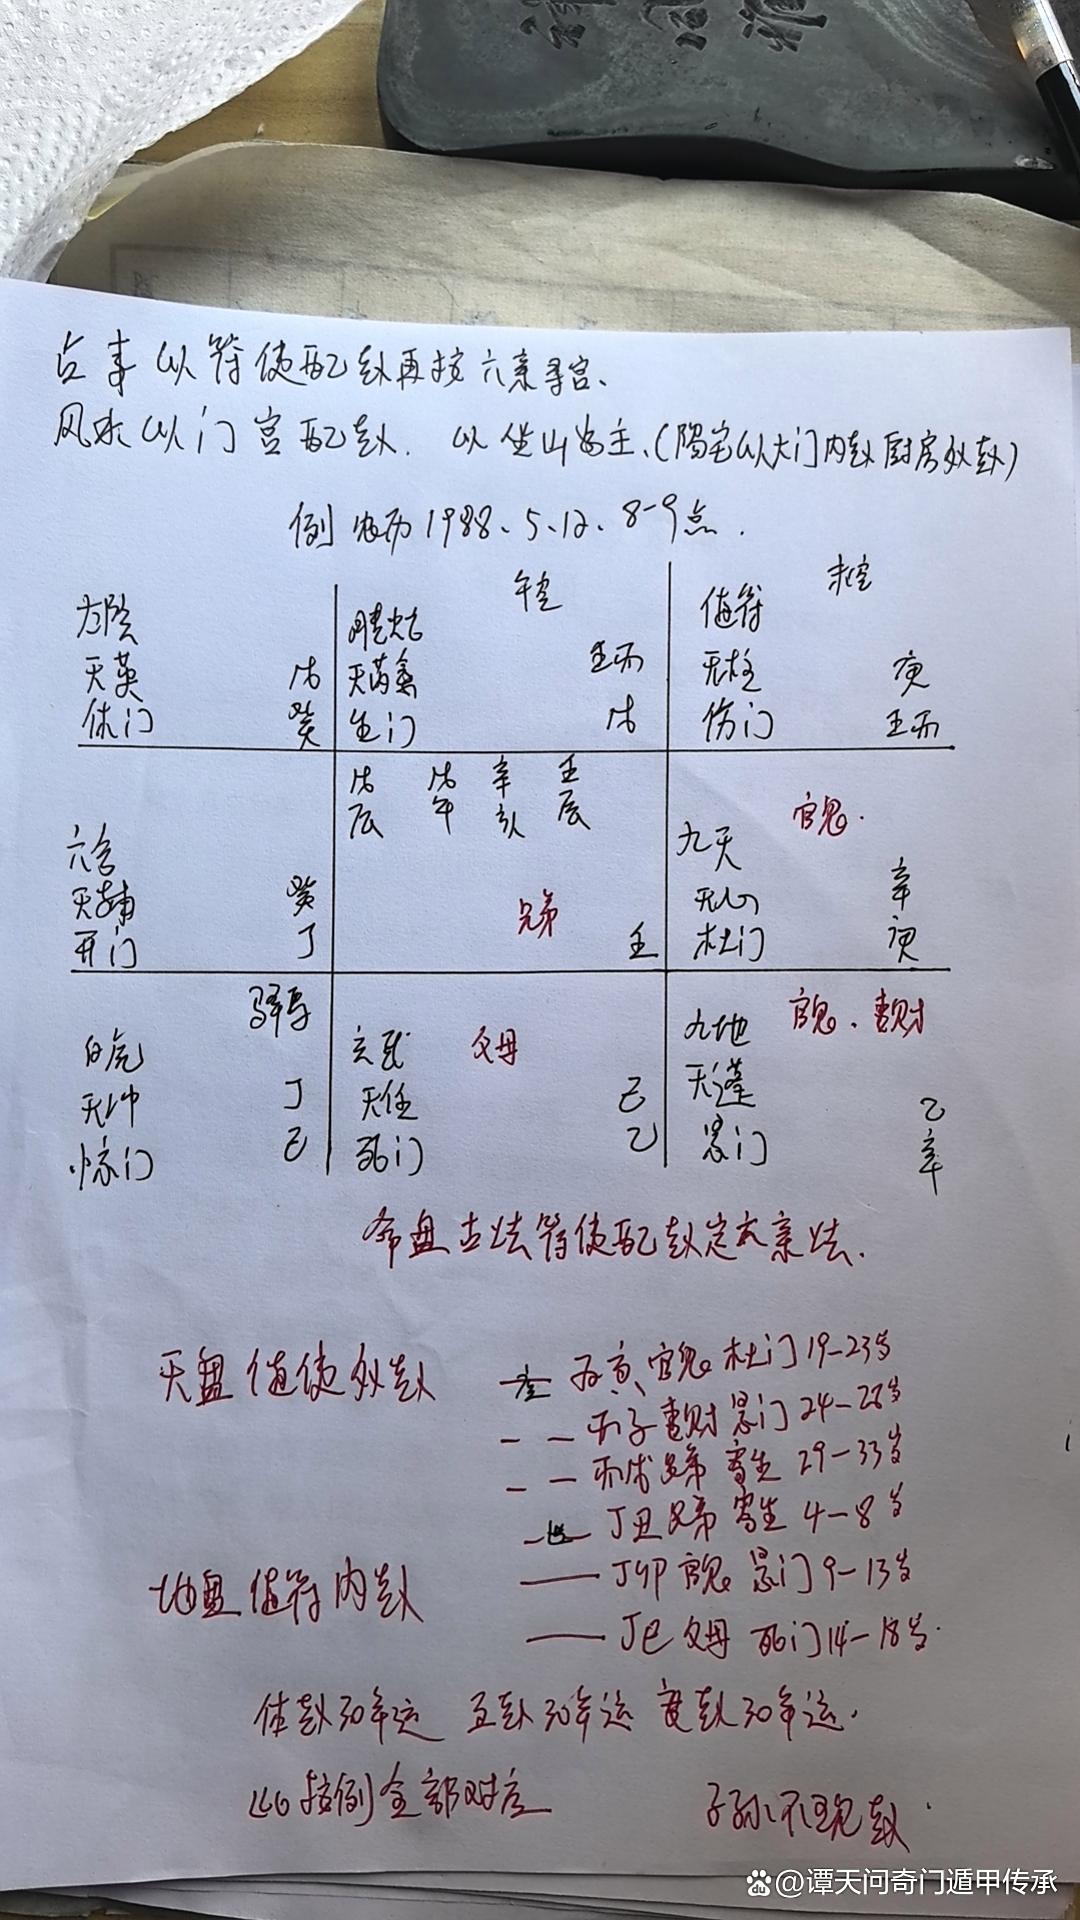 占事以符使配卦再按六亲寻宫、
风水以门宫配卦. 以坐山为主、(阳宅以大门内卦厨房外卦)
例 农历1988、5、12、8-9点.
午空 未空
太阴 腾蛇 值符
天英 戊 天芮禽 壬丙 天柱 庚
休门 癸 生门 戊 伤门 壬丙
戊 戊 辛 壬
辰 午 亥 辰
官鬼.
六合 九天
天辅 癸 兄弟 天心 辛
开门 丁 壬 杜门 庚
驿马
白虎 玄武 父母 九地 官鬼、妻财
天冲 丁 天任 己 天蓬 乙
惊门 己 死门 乙 景门 辛
命盘古法符使配卦定六亲法.
天盘值使外卦
官鬼 杜门 19-23岁
丙子 妻财 景门 24-28岁
丙戌 兄弟 寄生 29-33岁
丁丑 兄弟 寄生 4-8岁
地盘值符内卦
丁卯 官鬼 景门 9-13岁
丁巳 父母 死门 14-18岁.
体卦30年运 互卦30年运 变卦30年运.
以此按例全部对应 子孙不现卦.
@谭天问奇门遁甲传承